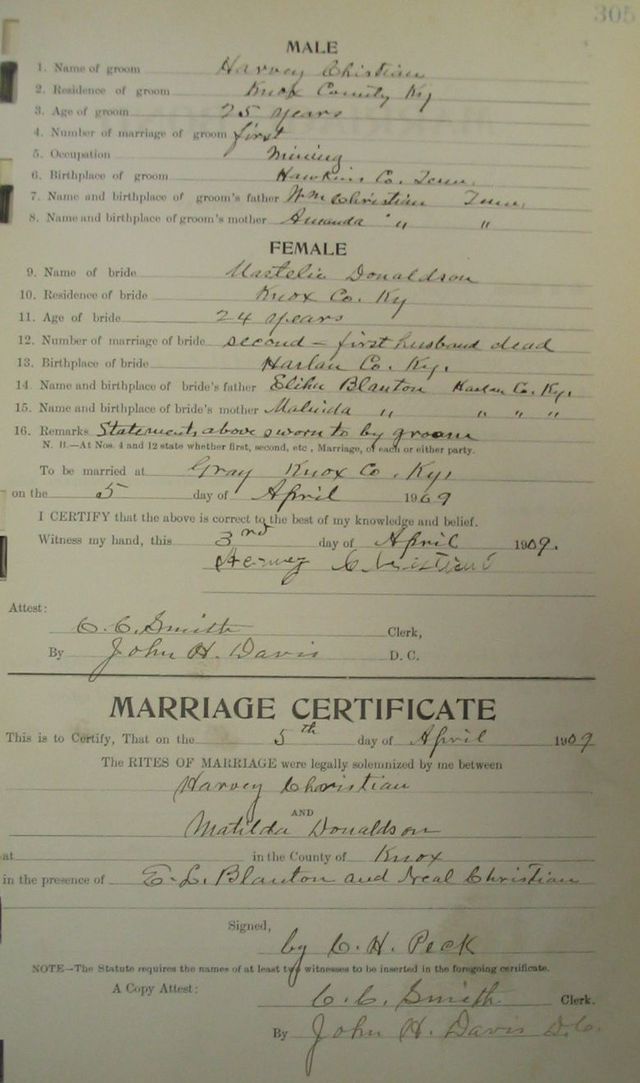 305
MALE
1. Name of groom Harvey Chistian
2. Residence of groom Knox County Ky
3. Age of groom 25 years
4. Number of marriage of groom first
5. Occupation Mining
6. Birthplace of groom Hawkins Co. Tenn.
7. Name and birthplace of groom's father Wm Christian Tenn.
8. Name and birthplace of groom's mother Amanda " "
FEMALE
9. Name of bride Donaldson
10. Residence of bride Knox Co. Ky
11. Age of bride 24 years
12. Number of marriage of bride second – first husband dead
13. Birthplace of bride Harlan Co. Ky.
14. Name and birthplace of bride's father Elihu Blanton Harlan Co. Ky.
15. Name and birthplace of bride's mother Malinda " " " "
16. Remarks Statements above sworn to by groom
N. B.—At Nos. 4 and 12 state whether first, second, etc , Marriage, of each or either party.
To be married at Gray Knox Co. Ky.
on the 5 day of April 1909
I CERTIFY that the above is correct to the best of my knowledge and belief.
Witness my hand, this 3rd day of April 1909.
Harvey Christian
Attest:
C. C. Smith Clerk,
By John H. Davis D. C.
MARRIAGE CERTIFICATE
This is to Certify, That on the 5th day of April 1909
The RITES OF MARRIAGE were legally solemnized by me between
Harvey Christian
AND
Matilda Donaldson
at in the County of Knox
in the presence of E. L. Blanton and Neal Christian
Signed,
by C. H. Peck
NOTE—The Statute requires the names of at least two witnesses to be inserted in the foregoing certificate.
A Copy Attest: C. C. Smith Clerk.
By John H. Davis D.C.